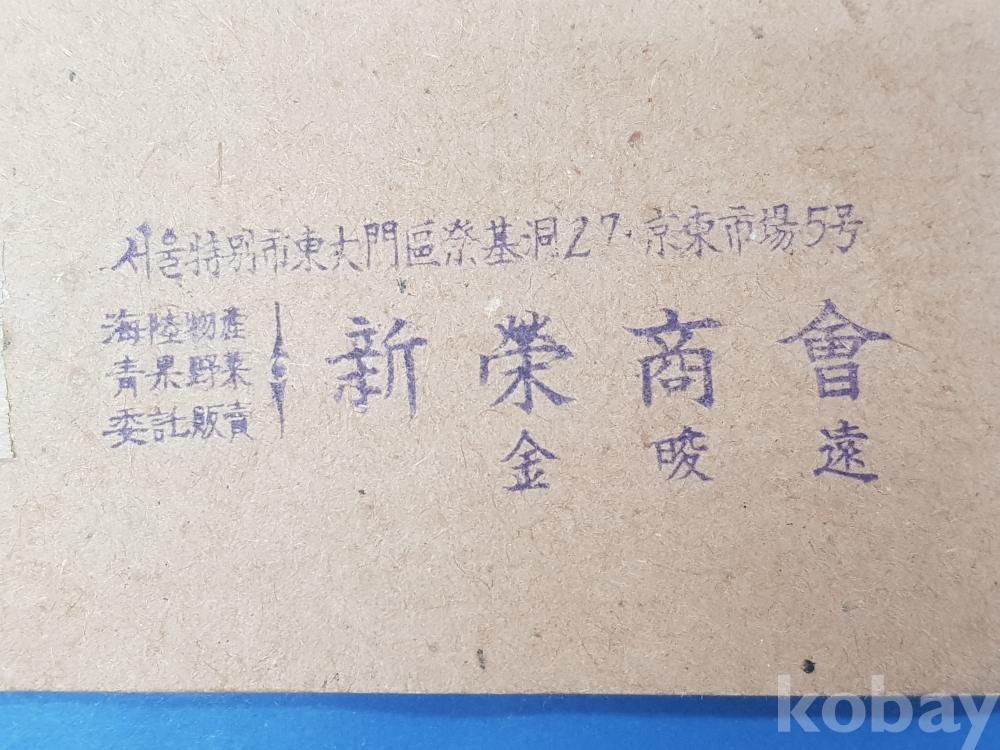 서울特別市東大門區祭基洞27.京東市場5号
海陸物産
青果野菜
委託販賣
新榮商會
金晙遠
kobay